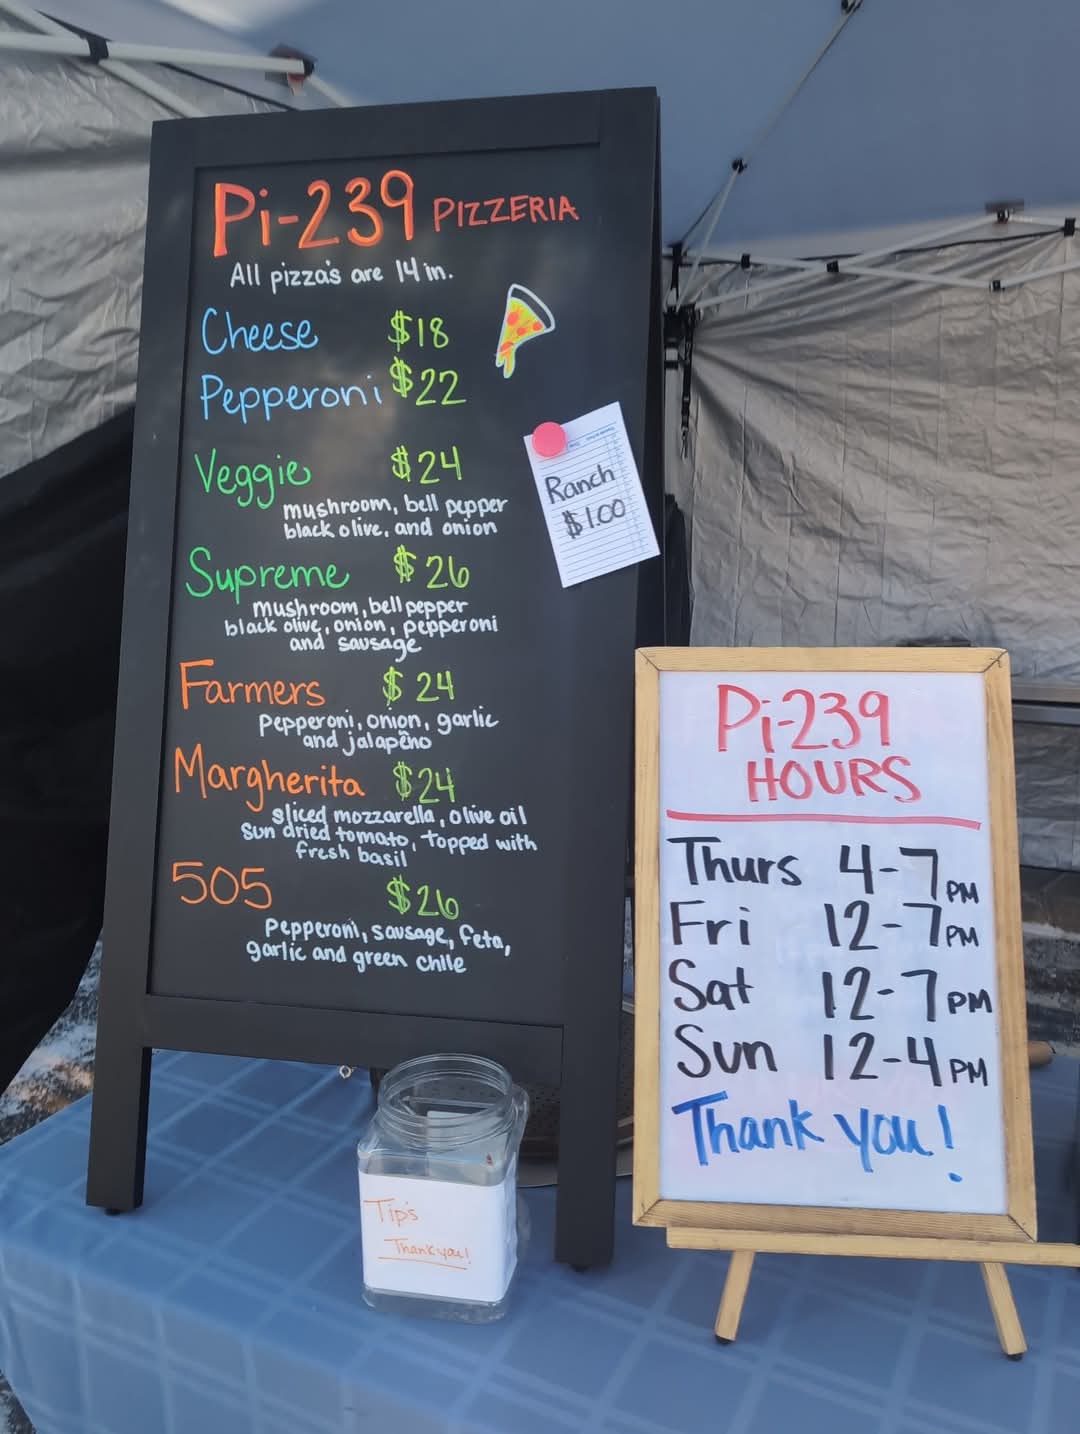 Pi-239 PIZZERIA
All pizza's are 14 in.
Cheese $18
Pepperoni $22
Veggie $24
mushroom, bell pepper
black olive, and onion
Supreme $26
mushroom, bell pepper
black olive, onion, pepperoni
and sausage
Farmers $24
Pepperoni, onion, garlic
and jalapeño
Margherita $24
sliced mozzarella, olive oil
sun dried tomato, topped with
fresh basil
505 $26
Pepperoni, sausage, feta,
garlic and green chile
Ranch
$1.00
Pi-239
HOURS
Thurs 4-7PM
Fri 12-7PM
Sat 12-7PM
Sun 12-4PM
Thank you!
Tip's
Thank you!